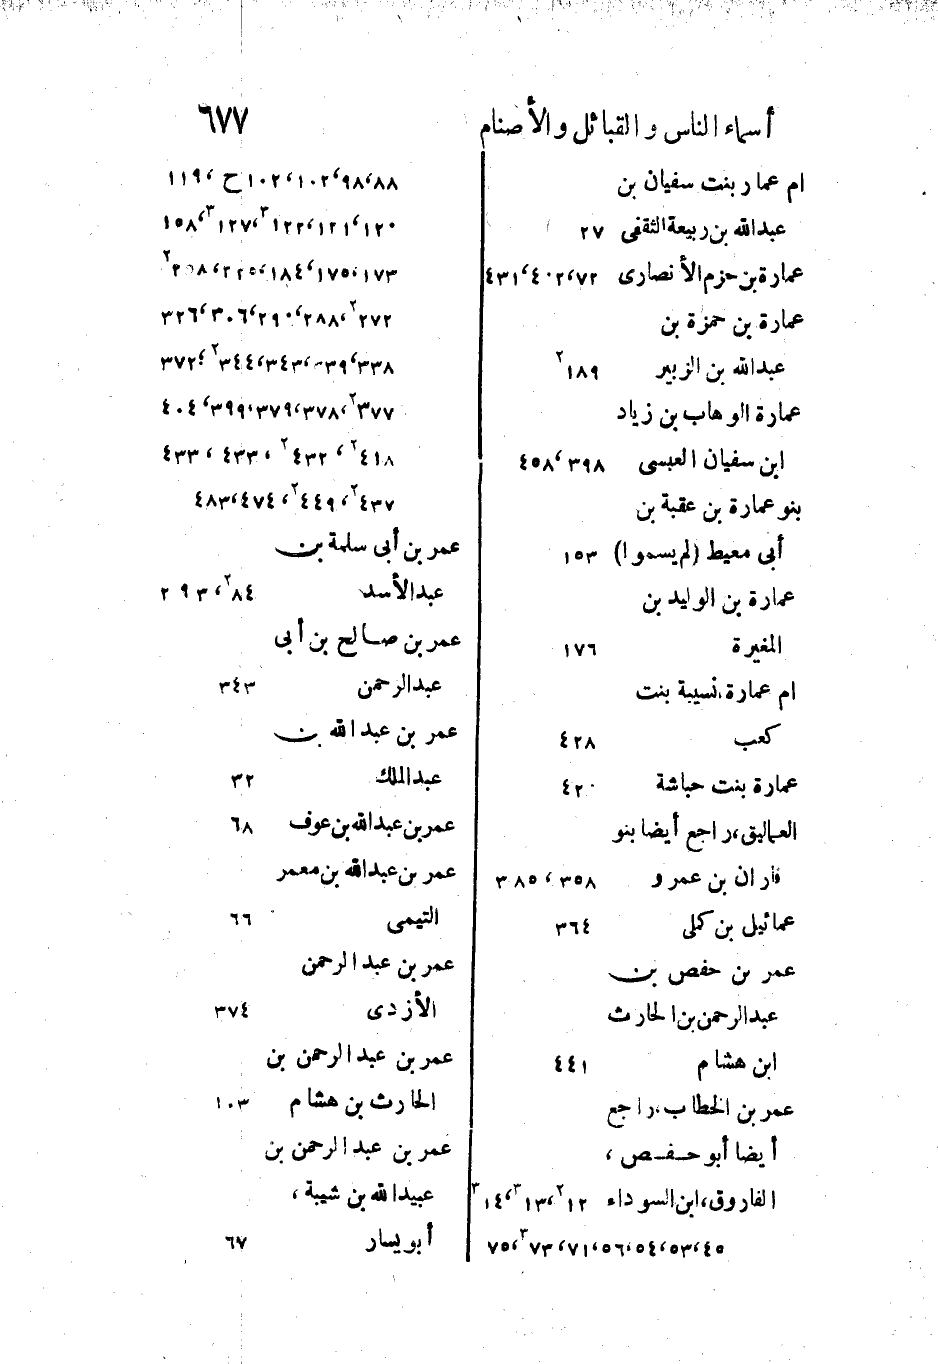 أسماء الناس و القبائل و الأصنام ٦٧٧
ام عمار بنت سفيان بن
عبدالله بن ربيعة الثقفى ٢٧
عمارة بن حزم الأنصارى ٧٢، ٤٠٢، ٤٣١
عمارة بن حمزة بن
عبدالله بن الزبير ١٨٩²
عمارة الوهاب بن زياد
ابن سفيان العبسى ٣٩٨، ٤٥٨
بنو عمارة بن عقبة بن
أبى معيط (لم يسموا) ١٥٣
عمارة بن الوليد بن
المغيرة ١٧٦
ام عمارة، نسيبة بنت
كعب ٤٢٨
عمارة بنت حباشة ٤٢٠
العماليق، راجع أيضا بنو
فاران بن عمرو ٣٥٨، ٣٨٥
عمائيل بن كملى ٣٦٤
عمر بن حفص بن
عبدالرحمن بن الحارث
ابن هشام ٤٤١
عمر بن الخطاب، راجع
أيضا أبو حفص،
الفاروق، ابن السوداء ١٢²، ١٣³، ١٤³
٤٥، ٥٣، ٥٤، ٥٦، ٧١، ٧٣³، ٧٥
٨٨، ٩٨، ١٠٢، ١٠٢ح، ١١٩
١٢٠، ١٢١، ١٢٢³، ١٢٧³، ١٥٨
١٧٣، ١٧٥، ١٨٤، ٢٢٥،
٢٧٢²، ٢٨٨، ٢٩٠، ٣٠٦، ٣٢٦
٣٣٨، ٣٣٩، ٣٤٣، ٣٤٤²، ٣٧٢
٣٧٧²، ٣٧٨، ٣٧٩، ٣٩٩، ٤٠٤
٤١٨²، ٤٣٢²، ٤٣٣، ٤٣٣
٤٣٧²، ٤٤٩²، ٤٧٤، ٤٨٣
عمر بن أبى سلمة بن
عبدالأسد ٨٤²، ٢٩٣
عمر بن صالح بن أبى
عبدالرحمن ٣٤٣
عمر بن عبدالله بن
عبدالملك ٣٢
عمر بن عبدالله بن عوف ٦٨
عمر بن عبدالله بن معمر
التيمى ٦٦
عمر بن عبدالرحمن
الأزدى ٣٧٤
عمر بن عبدالرحمن بن
الحارث بن هشام ١٠٣
عمر بن عبدالرحمن بن
عبيدالله بن شيبة،
أبو يسار ٦٧